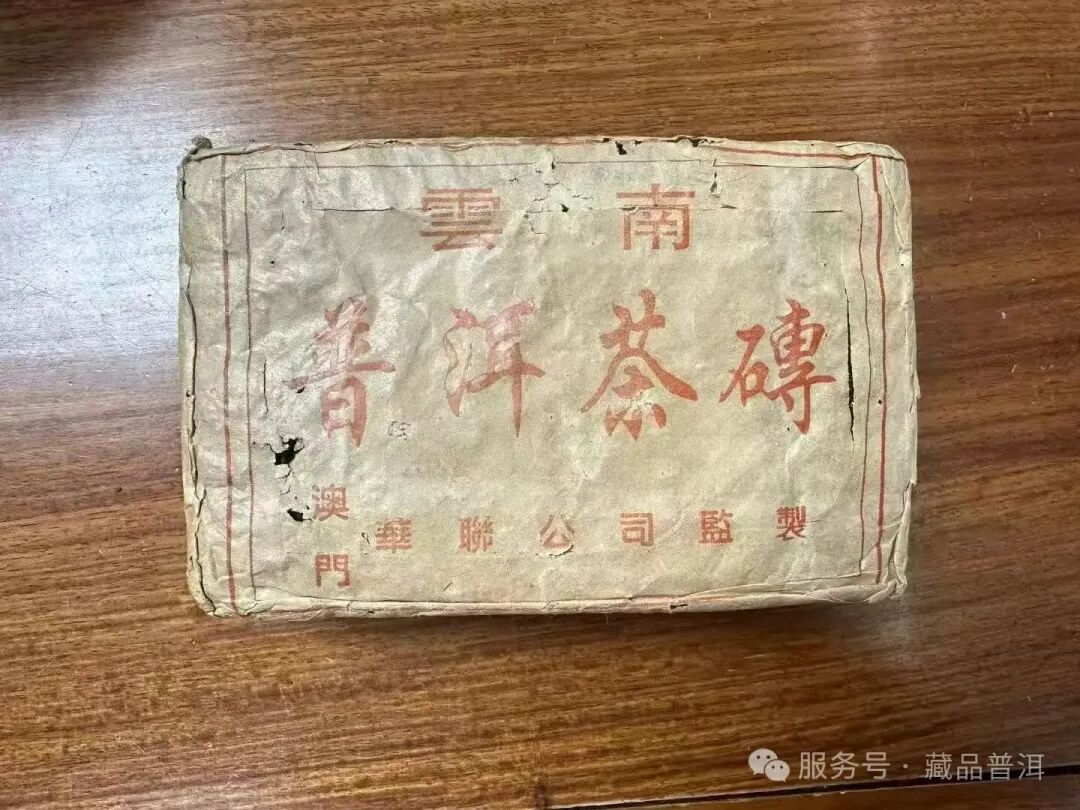 雲南
普洱茶磚
澳門華聯公司監製
服务号·藏品普洱